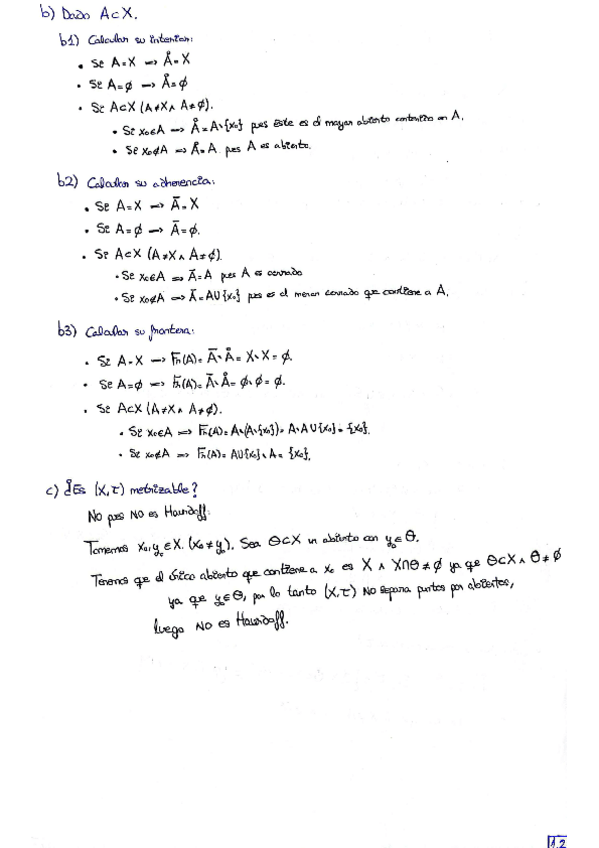 b) Dado A⊂X.
b1) Calcular su interior:
• Si A=X ⟶ Å=X
• Si A=∅ ⟶ Å=∅
• Si A⊂X (A≠X ∧ A≠∅).
• Si x₀∈A ⟹ Å=A\{x₀} pues éste es el mayor abierto contenido en A.
• Si x₀∉A ⟹ Å=A pues A es abierto.
b2) Calcular su adherencia:
• Si A=X ⟶ Ā=X
• Si A=∅ ⟶ Ā=∅.
• Si A⊂X (A≠X ∧ A≠∅).
• Si x₀∈A ⟹ Ā=A pues A es cerrado
• Si x₀∉A ⟹ Ā=A∪{x₀} pues es el menor cerrado que contiene a A.
b3) Calcular su frontera:
• Si A=X ⟶ Fr(A)=Ā\Å=X\X=∅.
• Si A=∅ ⟶ Fr(A)=Ā\Å=∅\∅=∅.
• Si A⊂X (A≠X ∧ A≠∅).
• Si x₀∈A ⟹ Fr(A)=A\(A\{x₀})=A\A∪{x₀}={x₀}.
• Si x₀∉A ⟹ Fr(A)=A∪{x₀}\A={x₀}.
c) ¿Es (X,τ) metrizable?
No pues NO es Hausdorff:
Tomemos x₀,y₀∈X (x₀≠y₀). Sea Θ⊂X un abierto con y₀∈Θ.
Tenemos que el único abierto que contiene a x₀ es X ∧ X∩Θ≠∅ ya que Θ⊂X ∧ Θ≠∅
ya que y₀∈Θ, por lo tanto (X,τ) NO separa puntos por abiertos,
luego NO es Hausdorff.
1.2